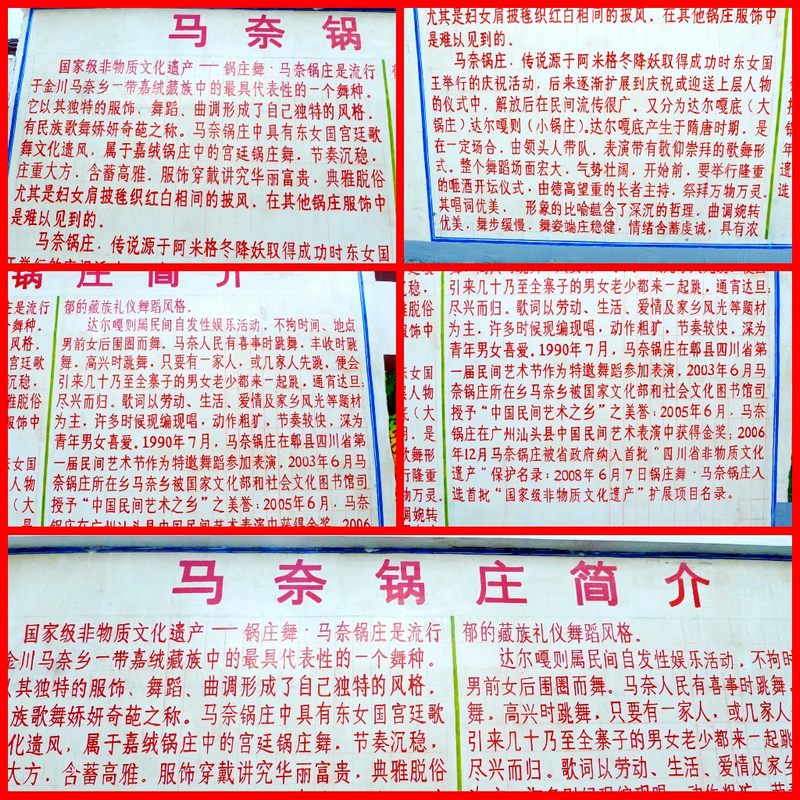 马奈锅
国家级非物质文化遗产——锅庄舞·马奈锅庄是流行
于金川马奈乡一带嘉绒藏族中的最具代表性的一个舞种。
它以其独特的服饰、舞蹈、曲调形成了自己独特的风格，
有民族歌舞娇妍奇葩之称。马奈锅庄中具有东女国宫廷歌
舞文化遗风，属于嘉绒锅庄中的宫廷锅庄舞，节奏沉稳，
庄重大方，含蓄高雅。服饰穿戴讲究华丽富贵，典雅脱俗
尤其是妇女肩披毪织红白相间的披风。在其他锅庄服饰中
是难以见到的。
马奈锅庄，传说源于阿米格冬降妖取得成功时东女国
尤其是妇女肩披毪织红白相间的披风。在其他锅庄服饰中
是难以见到的。
马奈锅庄，传说源于阿米格冬降妖取得成功时东女国
王举行的庆祝活动，后来逐渐扩展到庆祝或迎送上层人物
的仪式中，解放后在民间流传很广。又分为达尔嘎底（大
锅庄）达尔嘎则（小锅庄）。达尔嘎底产生于隋唐时期，是
在一定场合，由领头人带队，表演带有敬仰崇拜的歌舞形
式。整个舞蹈场面宏大，气势壮阔，开始前，要举行隆重
的咂酒开坛仪式，由德高望重的长者主持，祭拜万物万灵。
其唱词优美，形象的比喻蕴含了深沉的哲理，曲调婉转
优美，舞步缓慢，舞姿端庄稳健，情绪含蓄虔诚，具有浓
锅庄简介
郁的藏族礼仪舞蹈风格。
达尔嘎则属民间自发性娱乐活动，不拘时间、地点
男前女后围圈而舞。马奈人民有喜事时跳舞，丰收时跳
舞，高兴时跳舞，只要有一家人，或几家人先跳，便会
引来几十乃至全寨子的男女老少都来一起跳，通宵达旦；
尽兴而归。歌词以劳动、生活、爱情及家乡风光等题材
为主，许多时候现编现唱，动作粗犷，节奏较快，深为
青年男女喜爱。1990年7月，马奈锅庄在郫县四川省第
一届民间艺术节作为特邀舞蹈参加表演，2003年6月马
奈锅庄所在乡马奈乡被国家文化部和社会文化图书馆司
授予“中国民间艺术之乡”之美誉；2005年6月，马奈
锅庄在广州汕头县中国民间艺术表演中获得金奖；2006
引来几十乃至全寨子的男女老少都来一起跳，通宵达旦；
尽兴而归。歌词以劳动、生活、爱情及家乡风光等题材
为主，许多时候现编现唱，动作粗犷，节奏较快，深为
青年男女喜爱。1990年7月，马奈锅庄在郫县四川省第
一届民间艺术节作为特邀舞蹈参加表演，2003年6月马
奈锅庄所在乡马奈乡被国家文化部和社会文化图书馆司
授予“中国民间艺术之乡”之美誉；2005年6月，马奈
锅庄在广州汕头县中国民间艺术表演中获得金奖；2006
年12月马奈锅庄被省政府纳入首批“四川省非物质文化
遗产”保护名录；2008年6月7日锅庄舞·马奈锅庄入
选首批“国家级非物质文化遗产”扩展项目名录。
马奈锅庄简介
国家级非物质文化遗产——锅庄舞·马奈锅庄是流行
金川马奈乡一带嘉绒藏族中的最具代表性的一个舞种。
以其独特的服饰、舞蹈、曲调形成了自己独特的风格，
民族歌舞娇妍奇葩之称。马奈锅庄中具有东女国宫廷歌
化遗风，属于嘉绒锅庄中的宫廷锅庄舞，节奏沉稳，
大方，含蓄高雅。服饰穿戴讲究华丽富贵，典雅脱俗
郁的藏族礼仪舞蹈风格。
达尔嘎则属民间自发性娱乐活动，不拘时
男前女后围圈而舞。马奈人民有喜事时跳舞，
舞，高兴时跳舞，只要有一家人，或几家人
引来几十乃至全寨子的男女老少都来一起跳
尽兴而归。歌词以劳动、生活、爱情及家乡